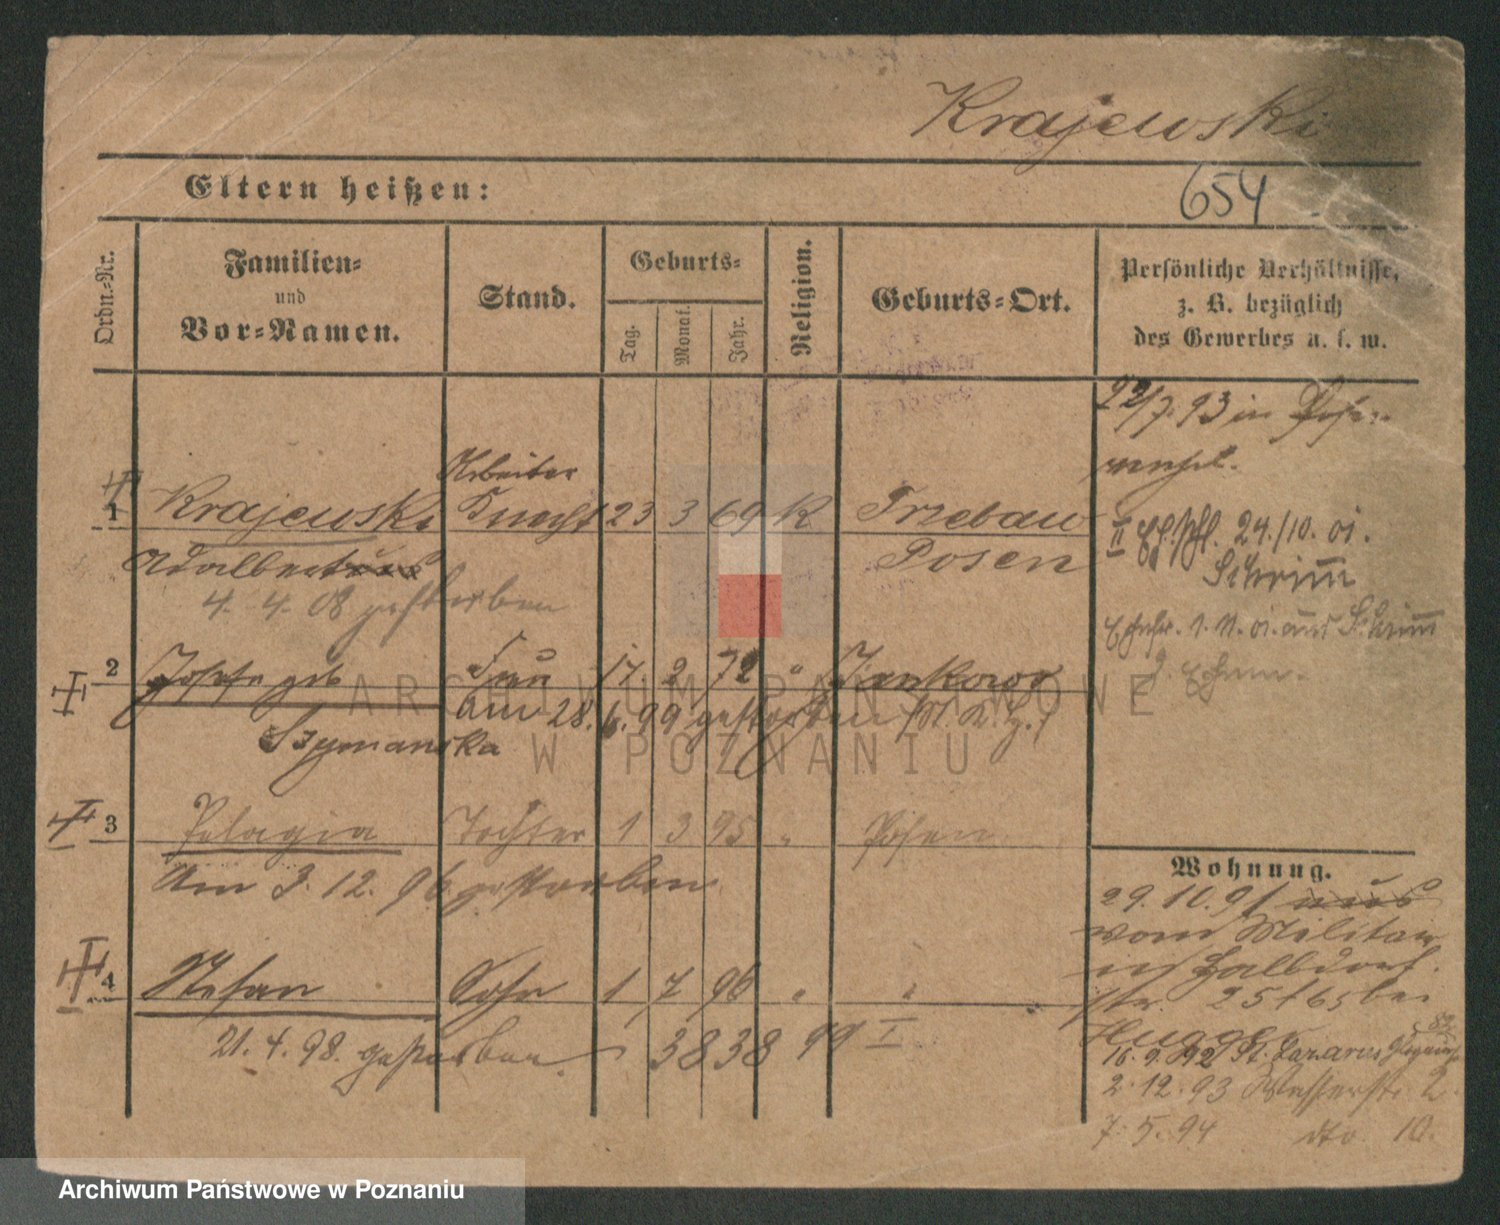 Krajewski
654
Eltern heißen:
Ordn.-Nr.
Familien-
und
Vor-Namen.
Stand.
Geburts-
Tag.
Monat.
Jahr.
Religion.
Geburts-Ort.
Persönliche Verhältnisse,
z. B. bezüglich
des Gewerbes u. s. w.
22/7. 93 in Posen
Arbeiter
1 Krajewski Knecht 23 3 69 K Trzebaw
Adalbertus Posen
4. 4. 08 gestorben
II 24./10. 01.
Schrimm
1. 11. 01. aus Schrimm
2 Josefa geb Frau 17 2 72 " Jankowo
am 28. 6. 99 gestorben
Szymanska
3 Pelagia Tochter 1 3 95 " Posen
Am 3. 12. 96 gestorben
4 Stefan Sohn 1 7 96 " "
21. 4. 98. gestorben 3838 99 I
Wohnung.
29. 10. 91 aus
vom Militair
in Halbdorf-
str. 25 bei
Hugge
16. 9. 92 St. Lazarus
2. 12. 93 Wasserstr. 2
7. 5. 94 dto 10.
ARCHIWUM PAŃSTWOWE
W POZNANIU
Archiwum Państwowe w Poznaniu